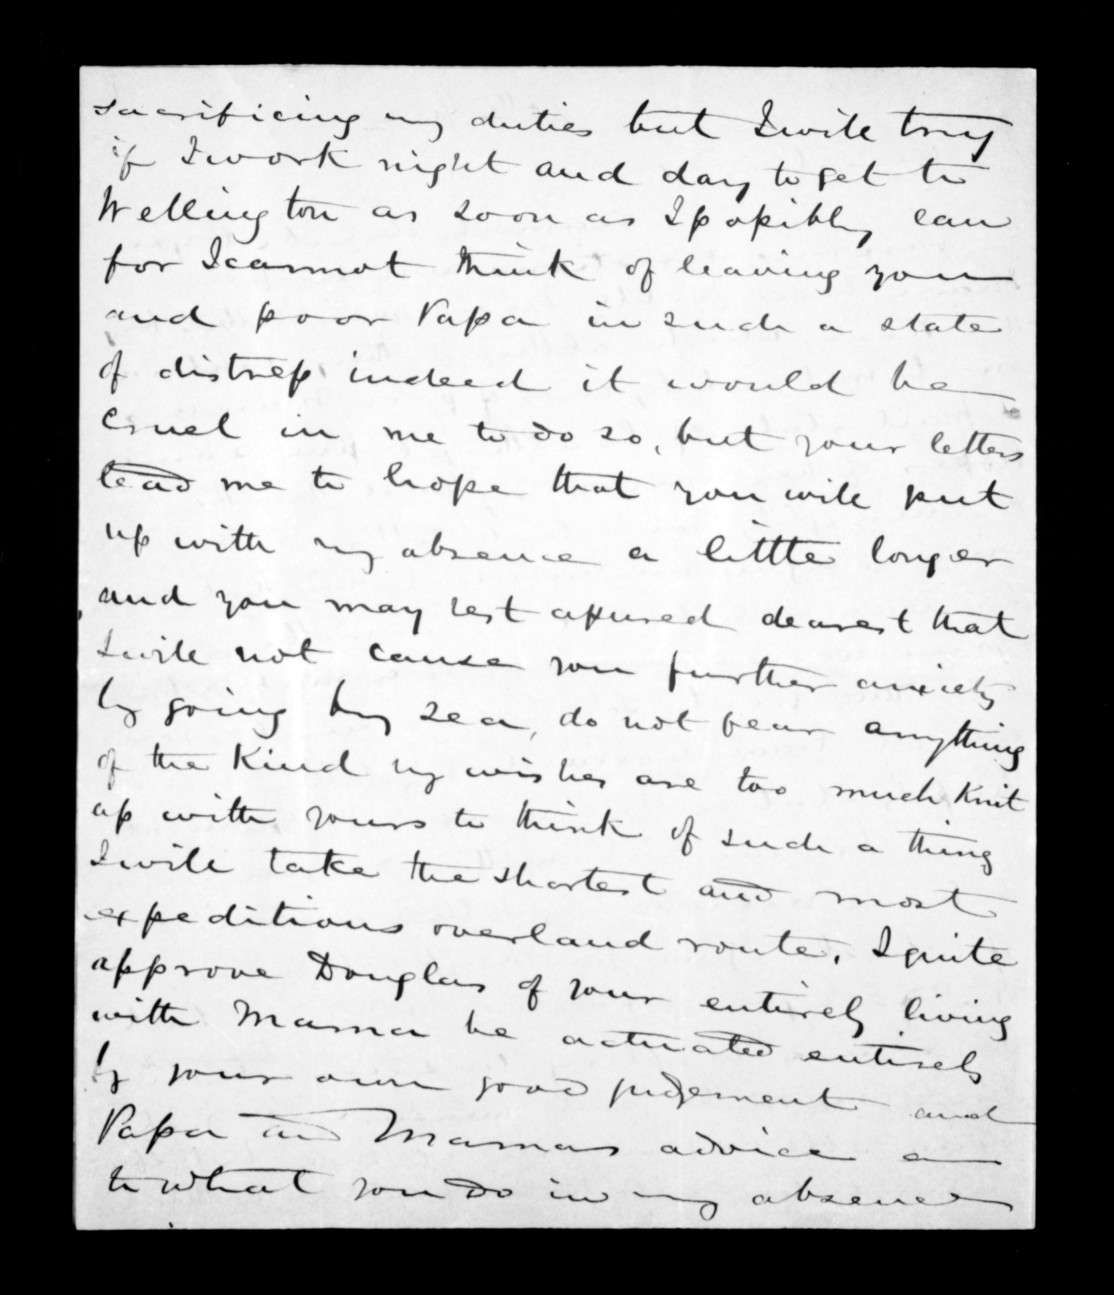 sacrificing my duties but I will try
if I work night and day to get to
Wellington as soon as I possibly can
for I cannot think of leaving you
and poor Papa in such a state
of distress indeed it would be
cruel in me to do so, but your letters
lead me to hope that you will put
up with my absence a little longer
and you may rest assured dearest that
I will not cause you further anxiety
by going by sea, do not fear anything
of the kind my wishes are too much knit
up with yours to think of such a thing
I will take the shortest and most
expeditious overland route, I quite
approve Douglas of your entirely living
with Mama be actuated entirely
by your own good judgement and
Papa and Mamas advice as
to what you do in my absence